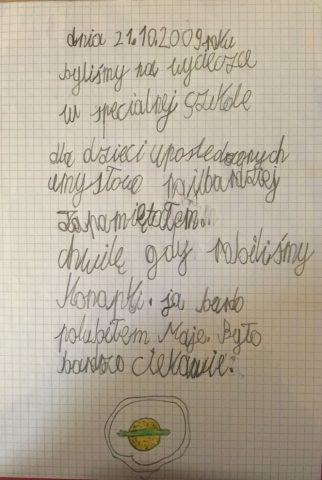 dnia 21.10.2009 roku
byliśmy na wycieczce
w specjalnej szkole
dla dzieci uposledzonych
umysłowo najbardziej
zapamiętałem
chwilę gdy robiliśmy
Konapki. ja bardo
polubiłem Maje. Było
bardzo ciekawie.